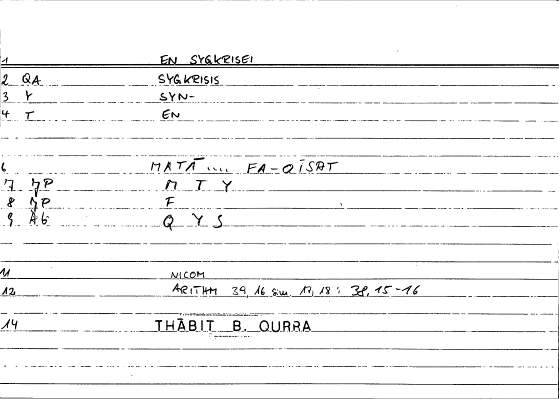 1 EN SYGKRISEI
2 QA SYGKRISIS
3 Y SYN-
4 T EN
6 MATĀ .... FA-QĪSAT
7 JP M T Y
8 JP F
9 AG Q Y S
11 NICOM
12 ARITHM 39, 16 sim. 17, 18; 38, 15-16
14 THĀBIT B. QURRA